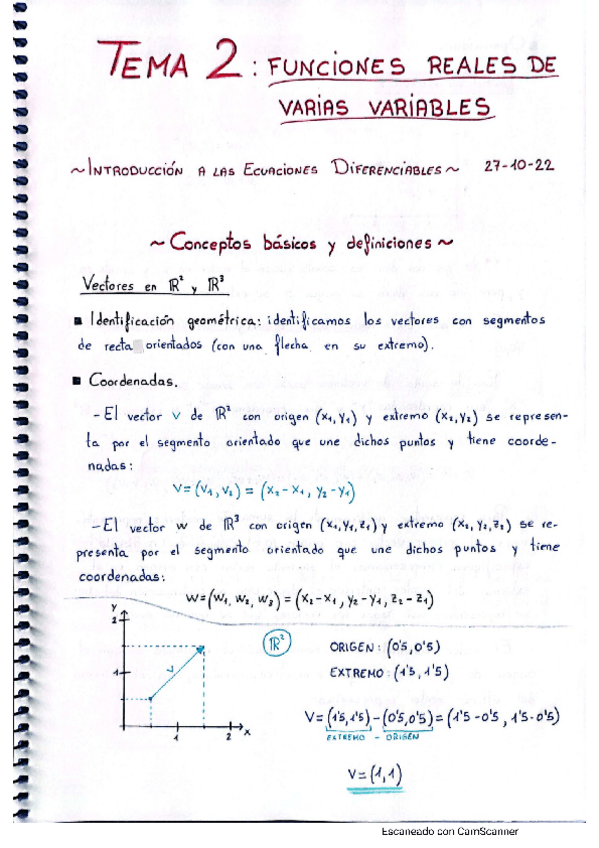 TEMA 2: FUNCIONES REALES DE
VARIAS VARIABLES
~INTRODUCCIÓN A LAS ECUACIONES DIFERENCIABLES~ 27-10-22
~Conceptos básicos y definiciones~
Vectores en ℝ² y ℝ³
■ Identificación geométrica: identificamos los vectores con segmentos
de recta orientados (con una flecha en su extremo).
■ Coordenadas.
-El vector v de ℝ² con origen (x₁,y₁) y extremo (x₂,y₂) se represen-
ta por el segmento orientado que une dichos puntos y tiene coorde-
nadas:
v=(v₁,v₂)=(x₂-x₁, y₂-y₁)
-El vector w de ℝ³ con origen (x₁,y₁,z₁) y extremo (x₂,y₂,z₂) se re-
presenta por el segmento orientado que une dichos puntos y tiene
coordenadas:
w=(w₁,w₂,w₃)=(x₂-x₁, y₂-y₁, z₂-z₁)
y
2
1
v
1 2 x
ℝ²
ORIGEN: (0'5,0'5)
EXTREMO: (1'5,1'5)
V=(1'5,1'5)-(0'5,0'5)=(1'5-0'5, 1'5-0'5)
EXTREMO - ORIGEN
V=(1,1)
Escaneado con CamScanner